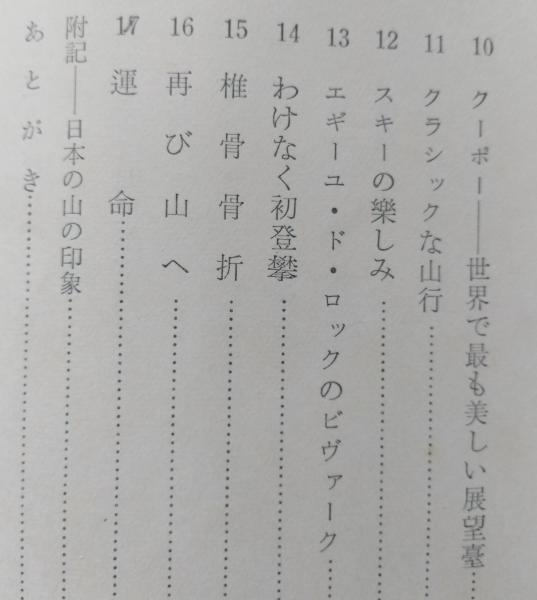 10 クーポー――世界で最も美しい展望臺……
11 クラシックな山行……
12 スキーの樂しみ……
13 エギーユ・ド・ロックのビヴァーク……
14 わけなく初登攀……
15 椎骨骨折……
16 再び山へ……
17 運命……
附記――日本の山の印象……
あとがき……